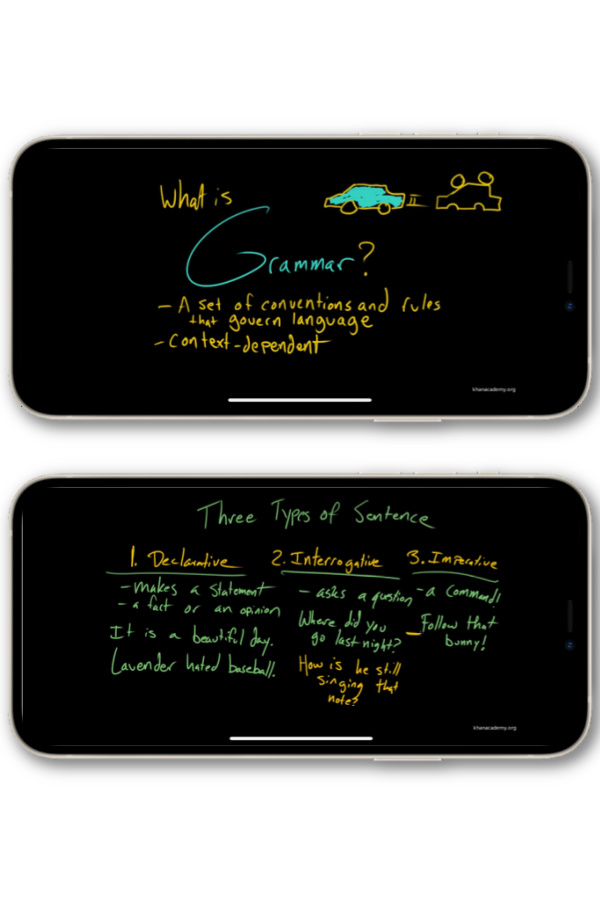 What is
Grammar?
- A set of conventions and rules
that govern language
- Context-dependent
khanacademy.org
Three Types of Sentence
1. Declarative
- makes a statement
- a fact or an opinion
It is a beautiful day.
Lavender hated baseball.
2. Interrogative
- asks a question
Where did you
go last night?
How is he still
singing that
note?
3. Imperative
- a command!
Follow that
bunny!
khanacademy.org